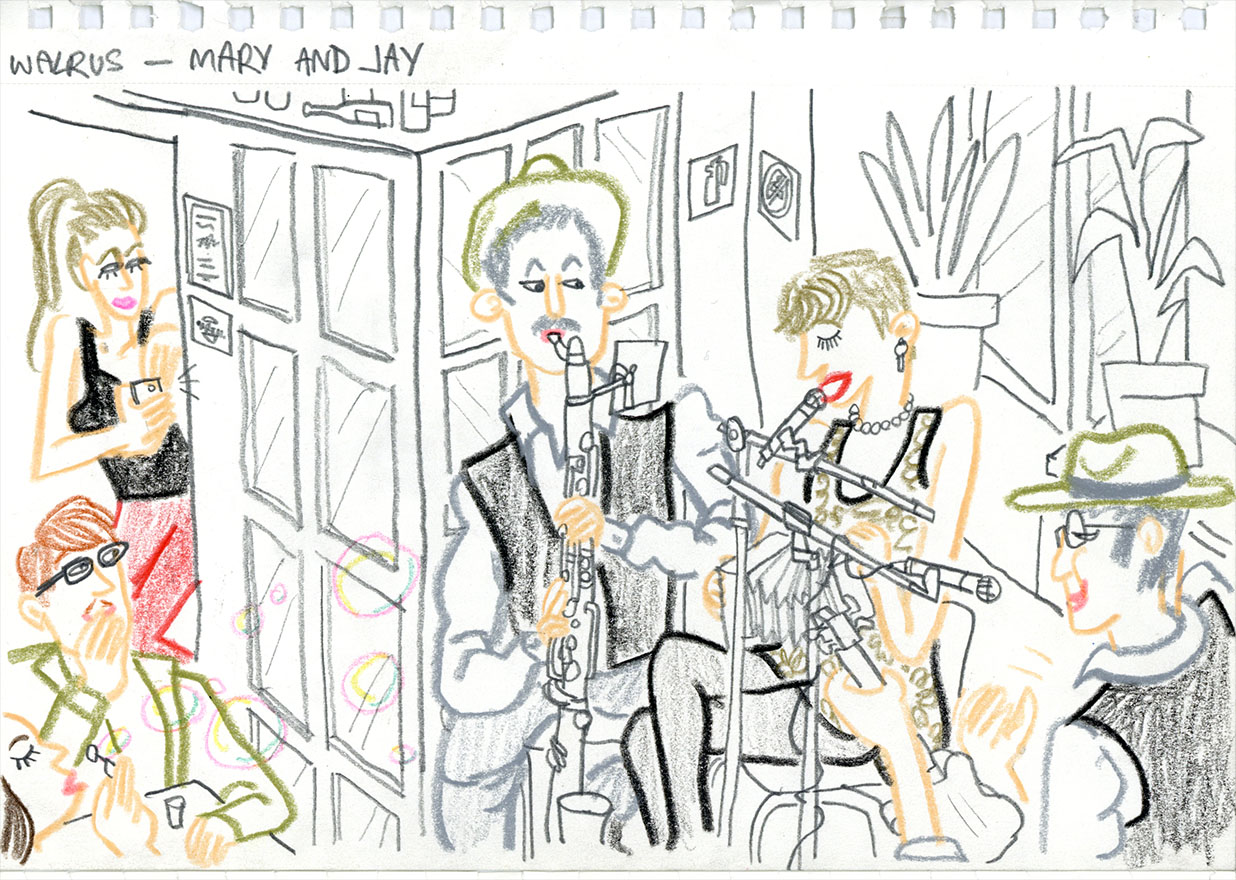 WALRUS — MARY AND JAY